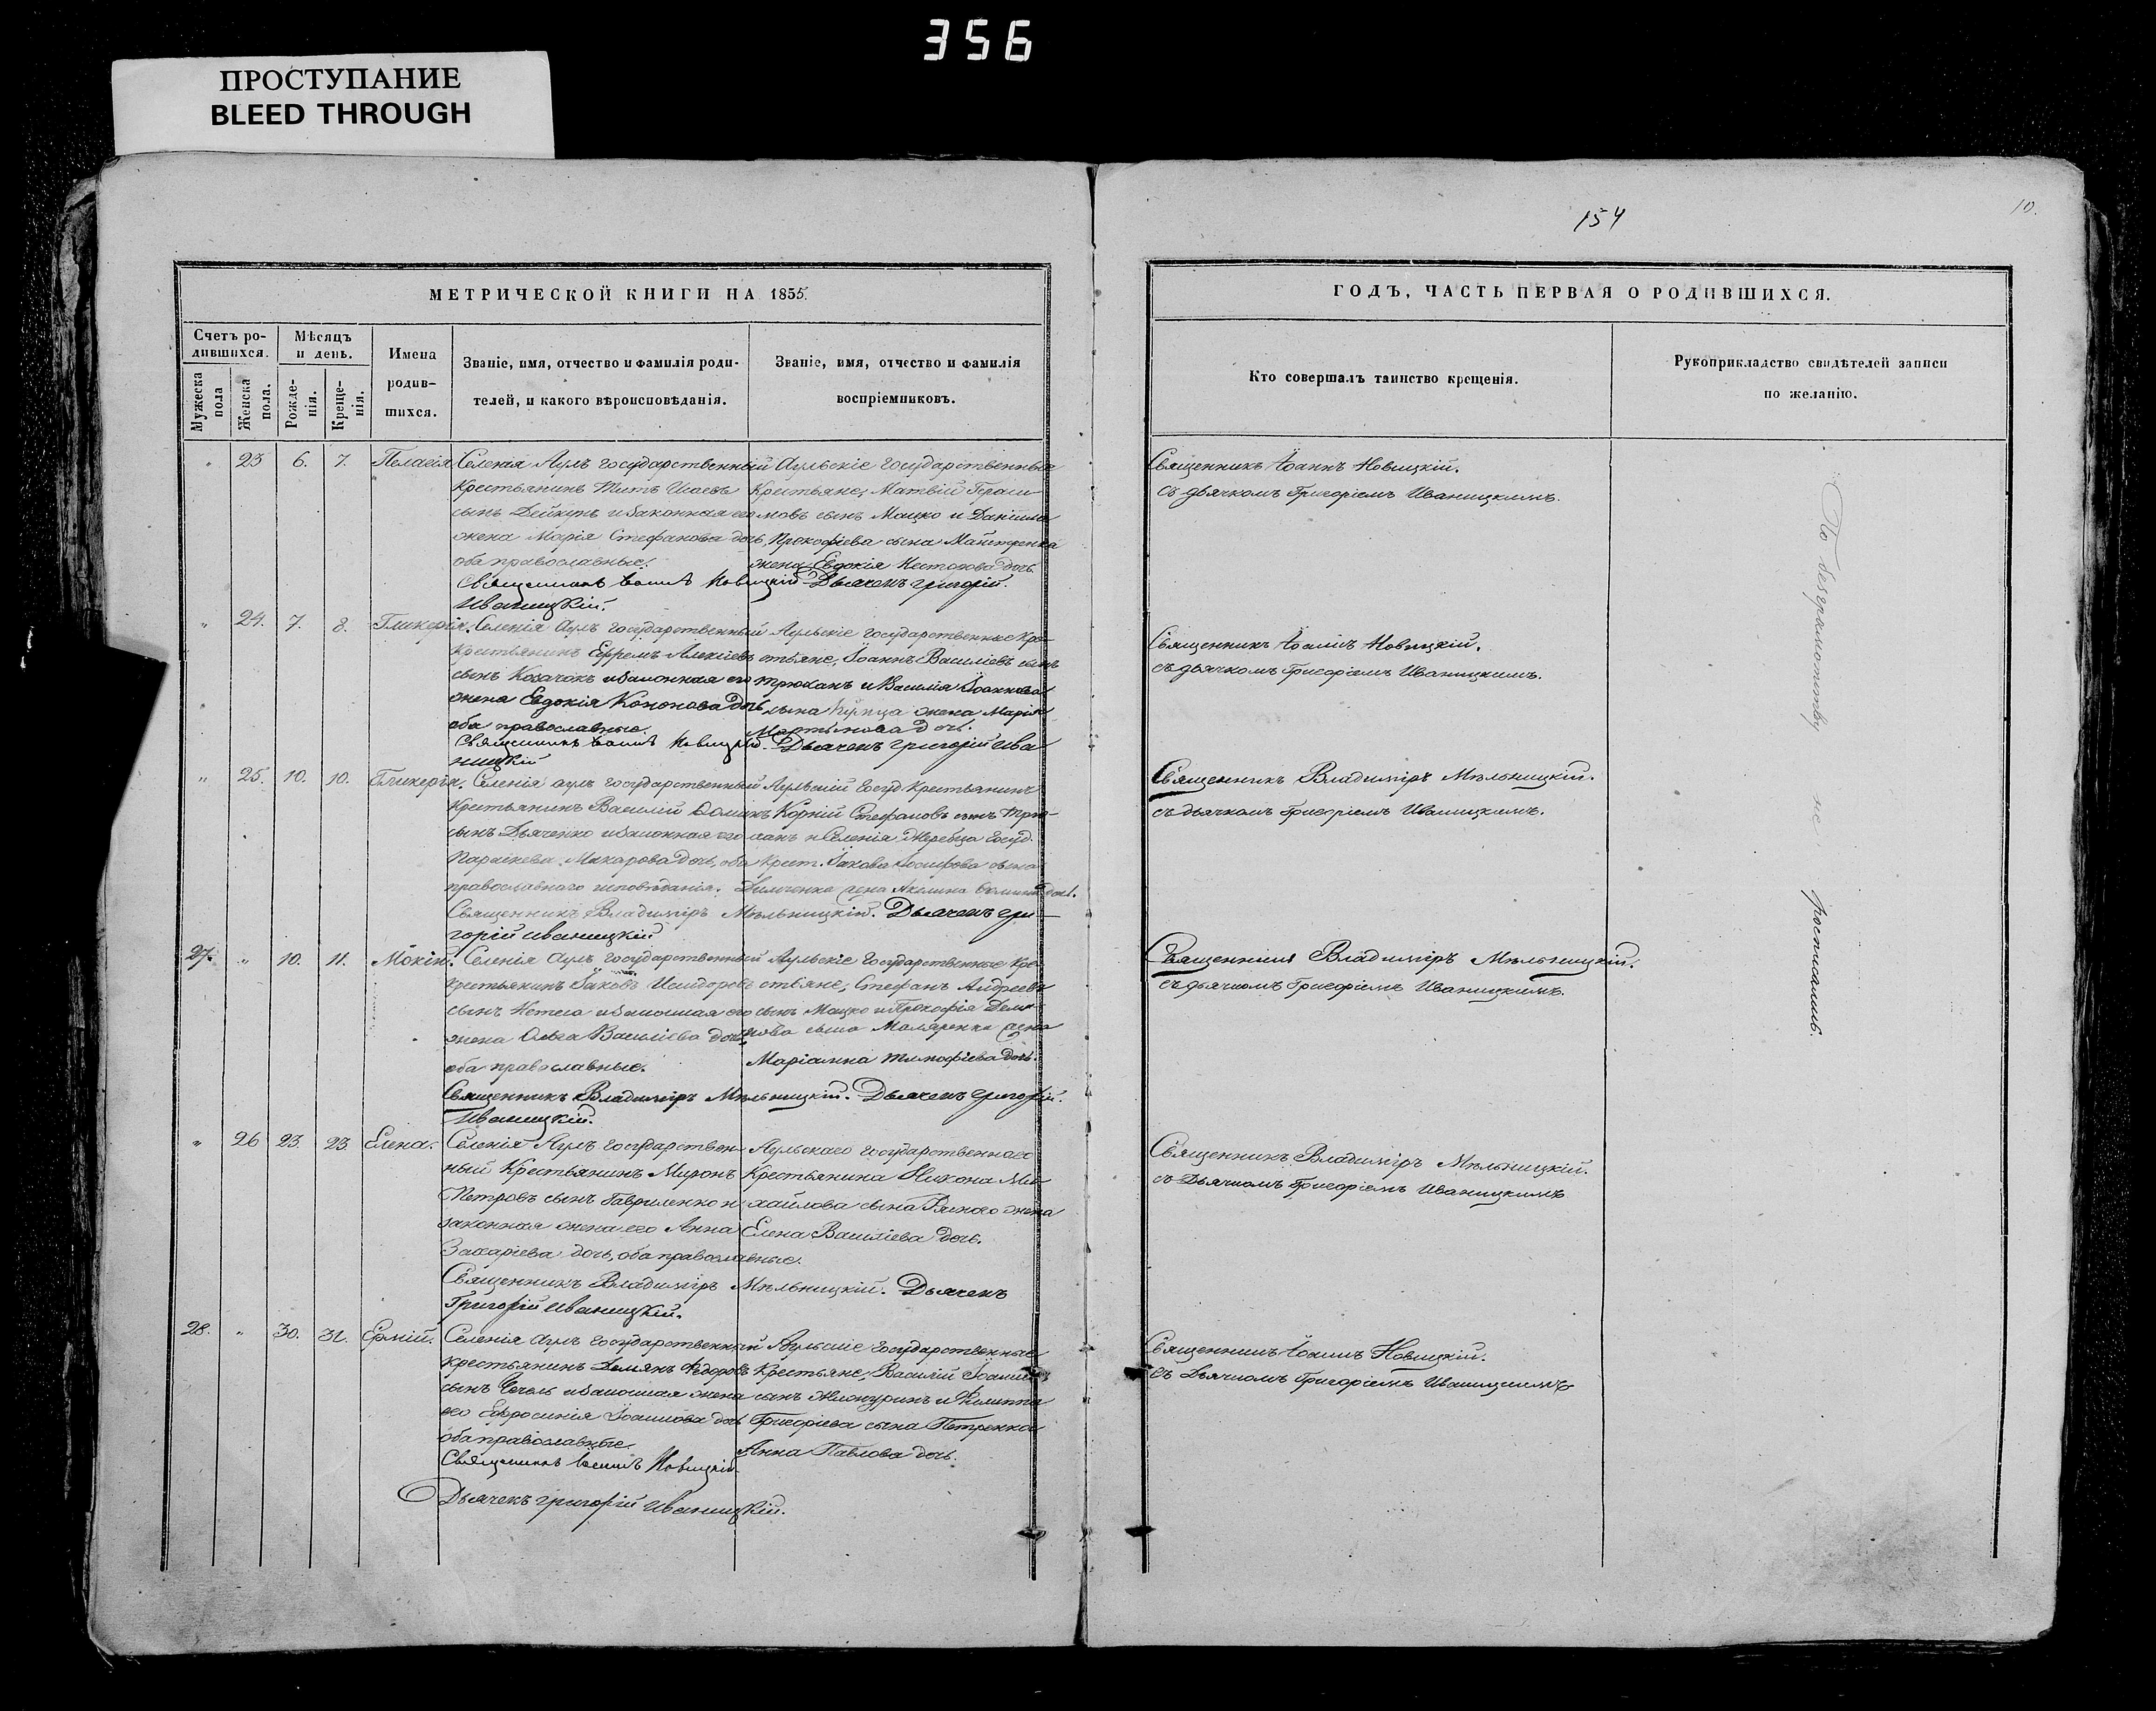 356
ПРОСТУПАНИЕ
BLEED THROUGH
154
10.
МЕТРИЧЕСКОЙ КНИГИ НА 1855.
Счетъ ро-
дившихся.
Мѣсяцъ
и день.
Мужеска
пола
Женска
пола.
Рожде-
нія.
Креще-
нія.
Имена
родив-
шихся.
Званіе, имя, отчество и фамилія роди-
телей, и какого вѣроисповѣданія.
Званіе, имя, отчество и фамилія
воспріемниковъ.
" 23 6. 7. Пелагія
Селенія Аулъ государственный
Крестьянинъ Титъ Исаевъ
сынъ Дейкунъ и законная его
жена Марія Стефанова дочь
оба православные.
Аульскіе государственные
Крестьяне, Матвій Гераси
мовъ сынъ Мацко и Даніила
Прокофіева сына
жена Евдокія Нестонова дочь
Священникъ Іоаннъ Новицкій Дьячекъ Григорій
Иваницкій.
" 24. 7. 8. Гликерія.
Селенія Аулъ государственный
Крестьянинъ Ефремъ Алексіевъ
сынъ Козачокъ и законная его
жена Евдокія Кононова дочь
оба православные.
Аульскіе государственные Кре-
стьяне, Іоаннъ Василіевъ сынъ
Трюханъ и Василія Іоаннова
сына Купца жена Марія
Мартынова дочь.
Священникъ Іоаннъ Новицкій. Дьячекъ Григорій Ива
ницкій
" 25. 10. 10. Гликерія.
Селенія Аулъ государственный
Крестьянинъ Василій
сынъ Дьяченко и законная его
Параскева Макарова дочь, оба
православнаго исповѣданія.
Аульскій Госуд. Крестьянинъ
Корній Стефановъ сынъ Трю-
ханъ и Селенія Жеребца Госуд.
Крест. Іакова Іосифова сына
жена Акилина дочь.
Священникъ Владиміръ Мѣльницкій. Дьячекъ Гри
горій Иваницкій
27. " 10. 11. Мокій.
Селенія Аулъ государственный
Крестьянинъ Іаковъ Исидоровъ
сынъ и законная его
жена Ольга Василіева дочь,
оба православные.
Аульскіе государственные Кре-
стьяне, Стефанъ Андреевъ
сынъ Мацко и Прокофія Деми
нова сына Маляренка жена
Маріанна Тимофіева дочь.
Священникъ Владиміръ Мѣльницкій. Дьячекъ Григорій.
Иваницкій.
" 26 23. 23. Елена.
Селенія Аулъ государствен-
ный Крестьянинъ Миронъ
Петровъ сынъ Гавриленко и
законная жена его Анна
Захаріева дочь, оба православные.
Аульскаго государственнаго
Крестьянина Никона Ми
хайлова сына жена
Елена Василіева дочь.
Священникъ Владиміръ Мѣльницкій. Дьячекъ
Григорій Иваницкій.
28. " 30. 31. Ермій.
Селенія Аулъ государственный
крестьянинъ Демянъ Федоровъ
сынъ Чечель и законная жена
его Ефросинія Іоаннова дочь
оба православные.
Аульскіе государственные
Крестьяне, Василій Іоанновъ
сынъ и Филиппа
Григоріева сына Петренка
Анна Павлова дочь.
Священникъ Іоаннъ Новицкій.
Дьячекъ Григорій Иваницкій.
ГОДЪ, ЧАСТЬ ПЕРВАЯ О РОДИВШИХСЯ.
Кто совершалъ таинство крещенія.
Рукоприкладство свидѣтелей записи
по желанію.
Священникъ Іоаннъ Новицкій.
съ дьячкомъ Григоріемъ Иваницкимъ.
Священникъ Іоаннъ Новицкій.
съ дьячкомъ Григоріемъ Иваницкимъ.
Священникъ Владиміръ Мѣльницкій.
съ дьячкомъ Григоріемъ Иваницкимъ.
Священникъ Владиміръ Мѣльницкій.
съ дьячкомъ Григоріемъ Иваницкимъ.
Священникъ Владиміръ Мѣльницкій.
съ Дьячкомъ Григоріемъ Иваницкимъ
Священникъ Іоаннъ Новицкій.
съ Дьячкомъ Григоріемъ Иваницкимъ
По безграмотству не росписались.